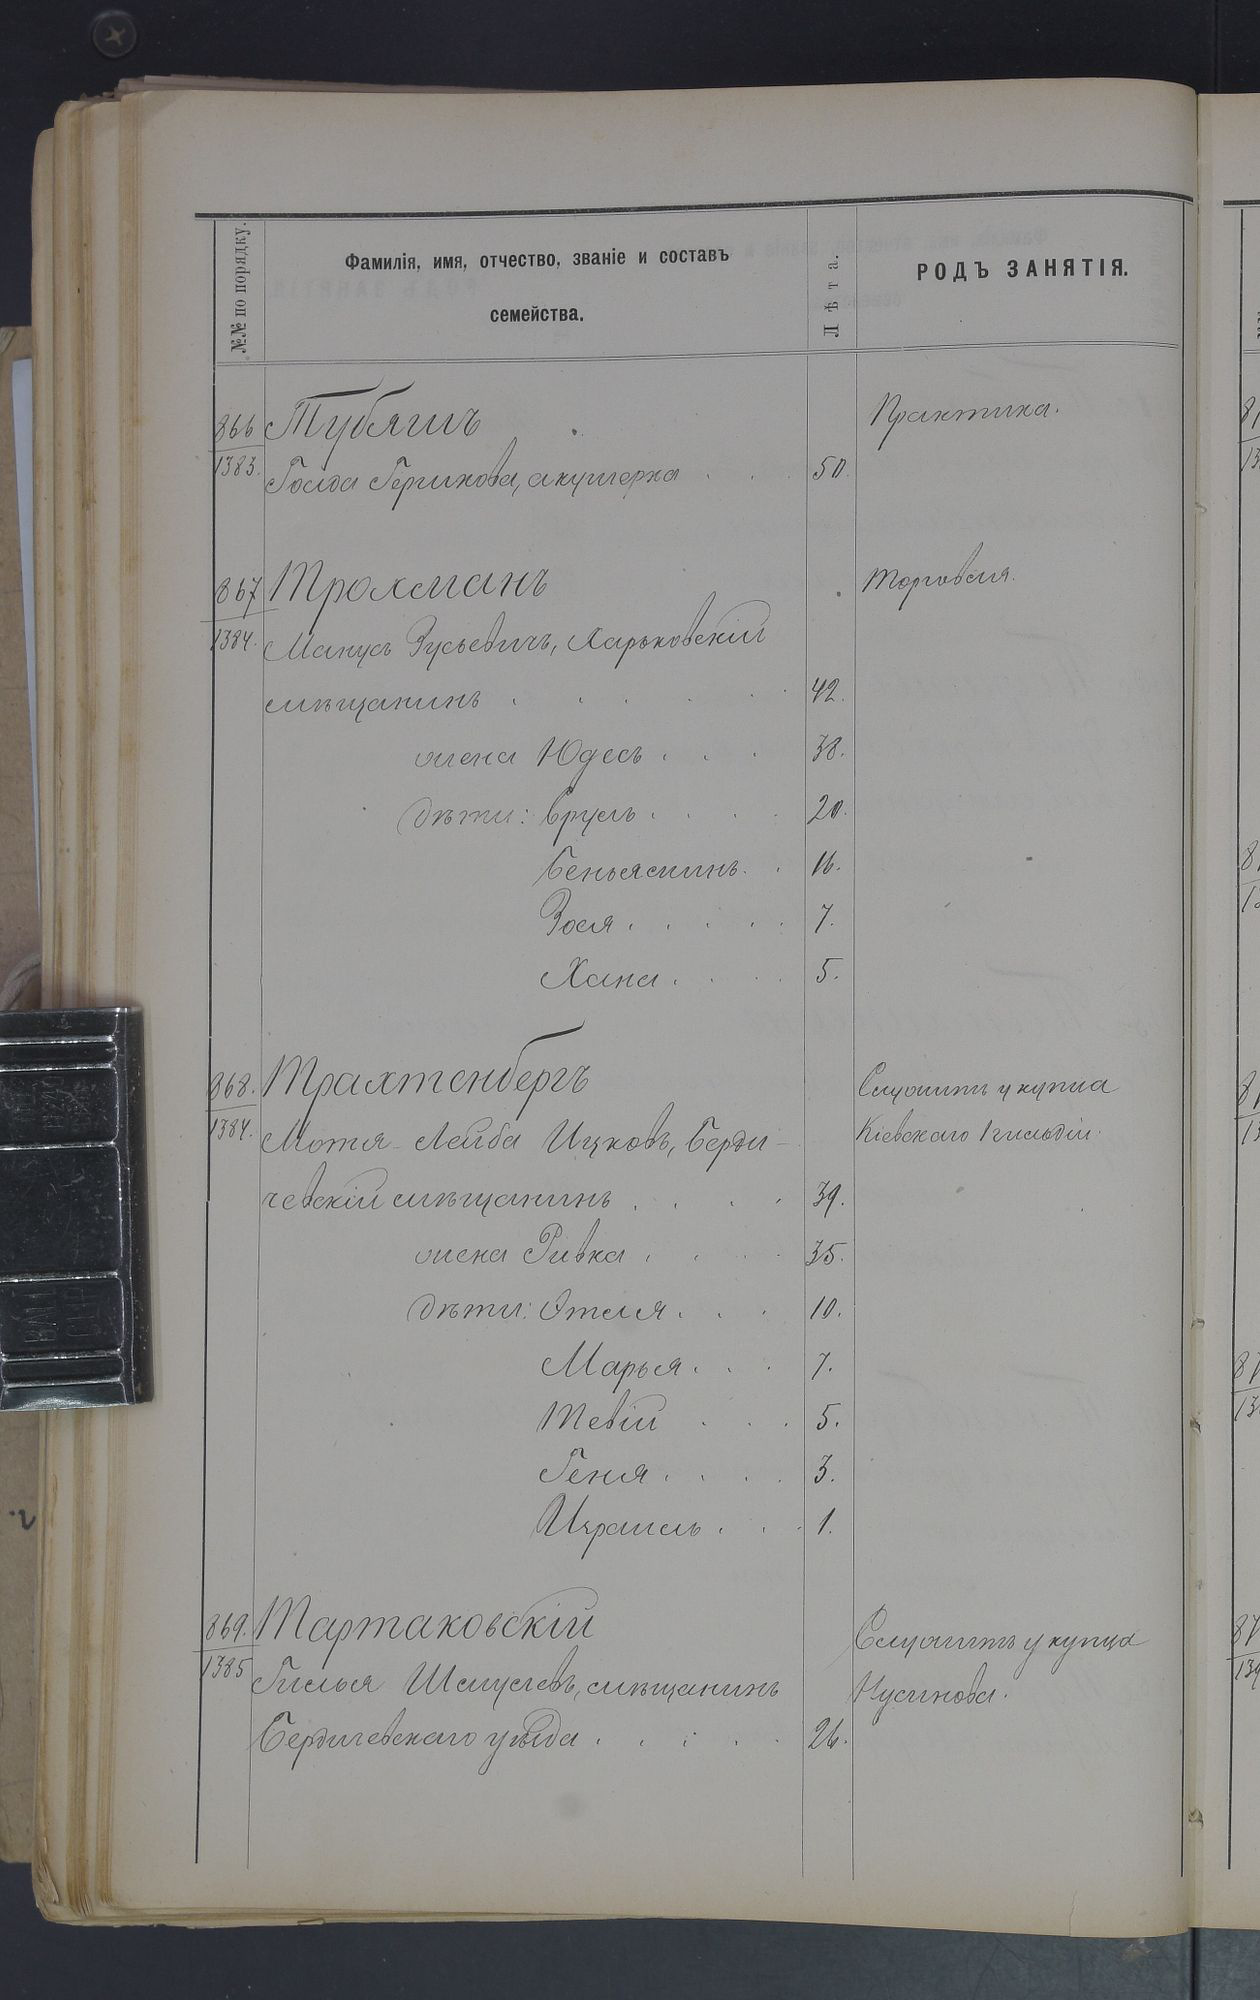 №№ по порядку.
Фамилія, имя, отчество, званіе и составъ
семейства.
Лѣта.
РОДЪ ЗАНЯТІЯ.
866 Тубяшъ Практика.
1383. Голда Гершкова, акушерка . . . 50.
867 Трохманъ Торговля.
1384. Манусъ Зусьевичъ, Харьковскій
мѣщанинъ . . . . . . 42.
жена Юдесь . . . 38.
дѣти: Сруль . . . . 20.
Беньяминъ . . 16.
Зося . . . . . 7.
Хана . . . . 5.
868. Трахтенбергъ Служитъ у купца
1384. Мотя-Лейба Ицковъ, Берди- Кіевскаго 1 гильдіи.
чевскій мѣщанинъ . . . . 39.
жена Ривка . . . . 35.
дѣти: Этля . . . 10.
Марья . . . 7.
Тевій . . . 5.
Геня . . . . 3.
Израиль . . . 1.
869. Тартаковскій Служитъ у купца
1385 Гилья Шмулевъ, мѣщанинъ Нусинова.
Бердичевскаго уѣзда . . . . . 26.